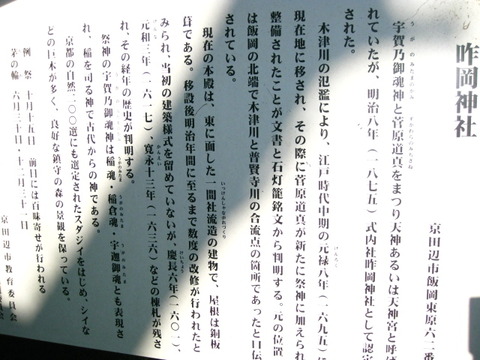 咋岡神社
京田辺市飯岡東原六二
うがのみたまのかみ
すがわらのみちざね
宇賀乃御魂神と菅原道真をまつり天神あるいは天神宮と呼ば
れていたが、明治八年(一八七五)式内社咋岡神社として認定
された。
木津川の氾濫により、江戸時代中期の元禄八年(一六九五)に
現在地に移され、その際に菅原道真が新たに祭神に加えられ
整備されたことが文書と石灯籠銘文から判明する。元の位置
は飯岡の北端で木津川と普賢寺川の合流点の箇所であったと口伝
されている。
いっけんしゃながれづくり
現在の本殿は、東に面した一間社流造の建物で、屋根は銅板
葺である。移設後明治年間に至るまで数度の改修が行われたと
みられ、当初の建築様式を留めていないが、慶長六年(一六〇一)、
元和三年(一六一七)、寛永十三年(一六三六)などの棟札が残さ
れ、その経年の歴史が判明する。
祭神の宇賀乃御魂神は稲魂・稲倉魂・宇迦御魂とも表現さ
れ、稲を司る神で古代からの神である。
京都の自然二〇〇選にも選定されたスダジイをはじめ、シイな
どの巨木が多く、良好な鎮守の森の景観を保っている。
例祭 十月十五日 前日には百味寄せが行われる
茅の輪 六月三十日・十二月三十一日
京田辺市教育委員会